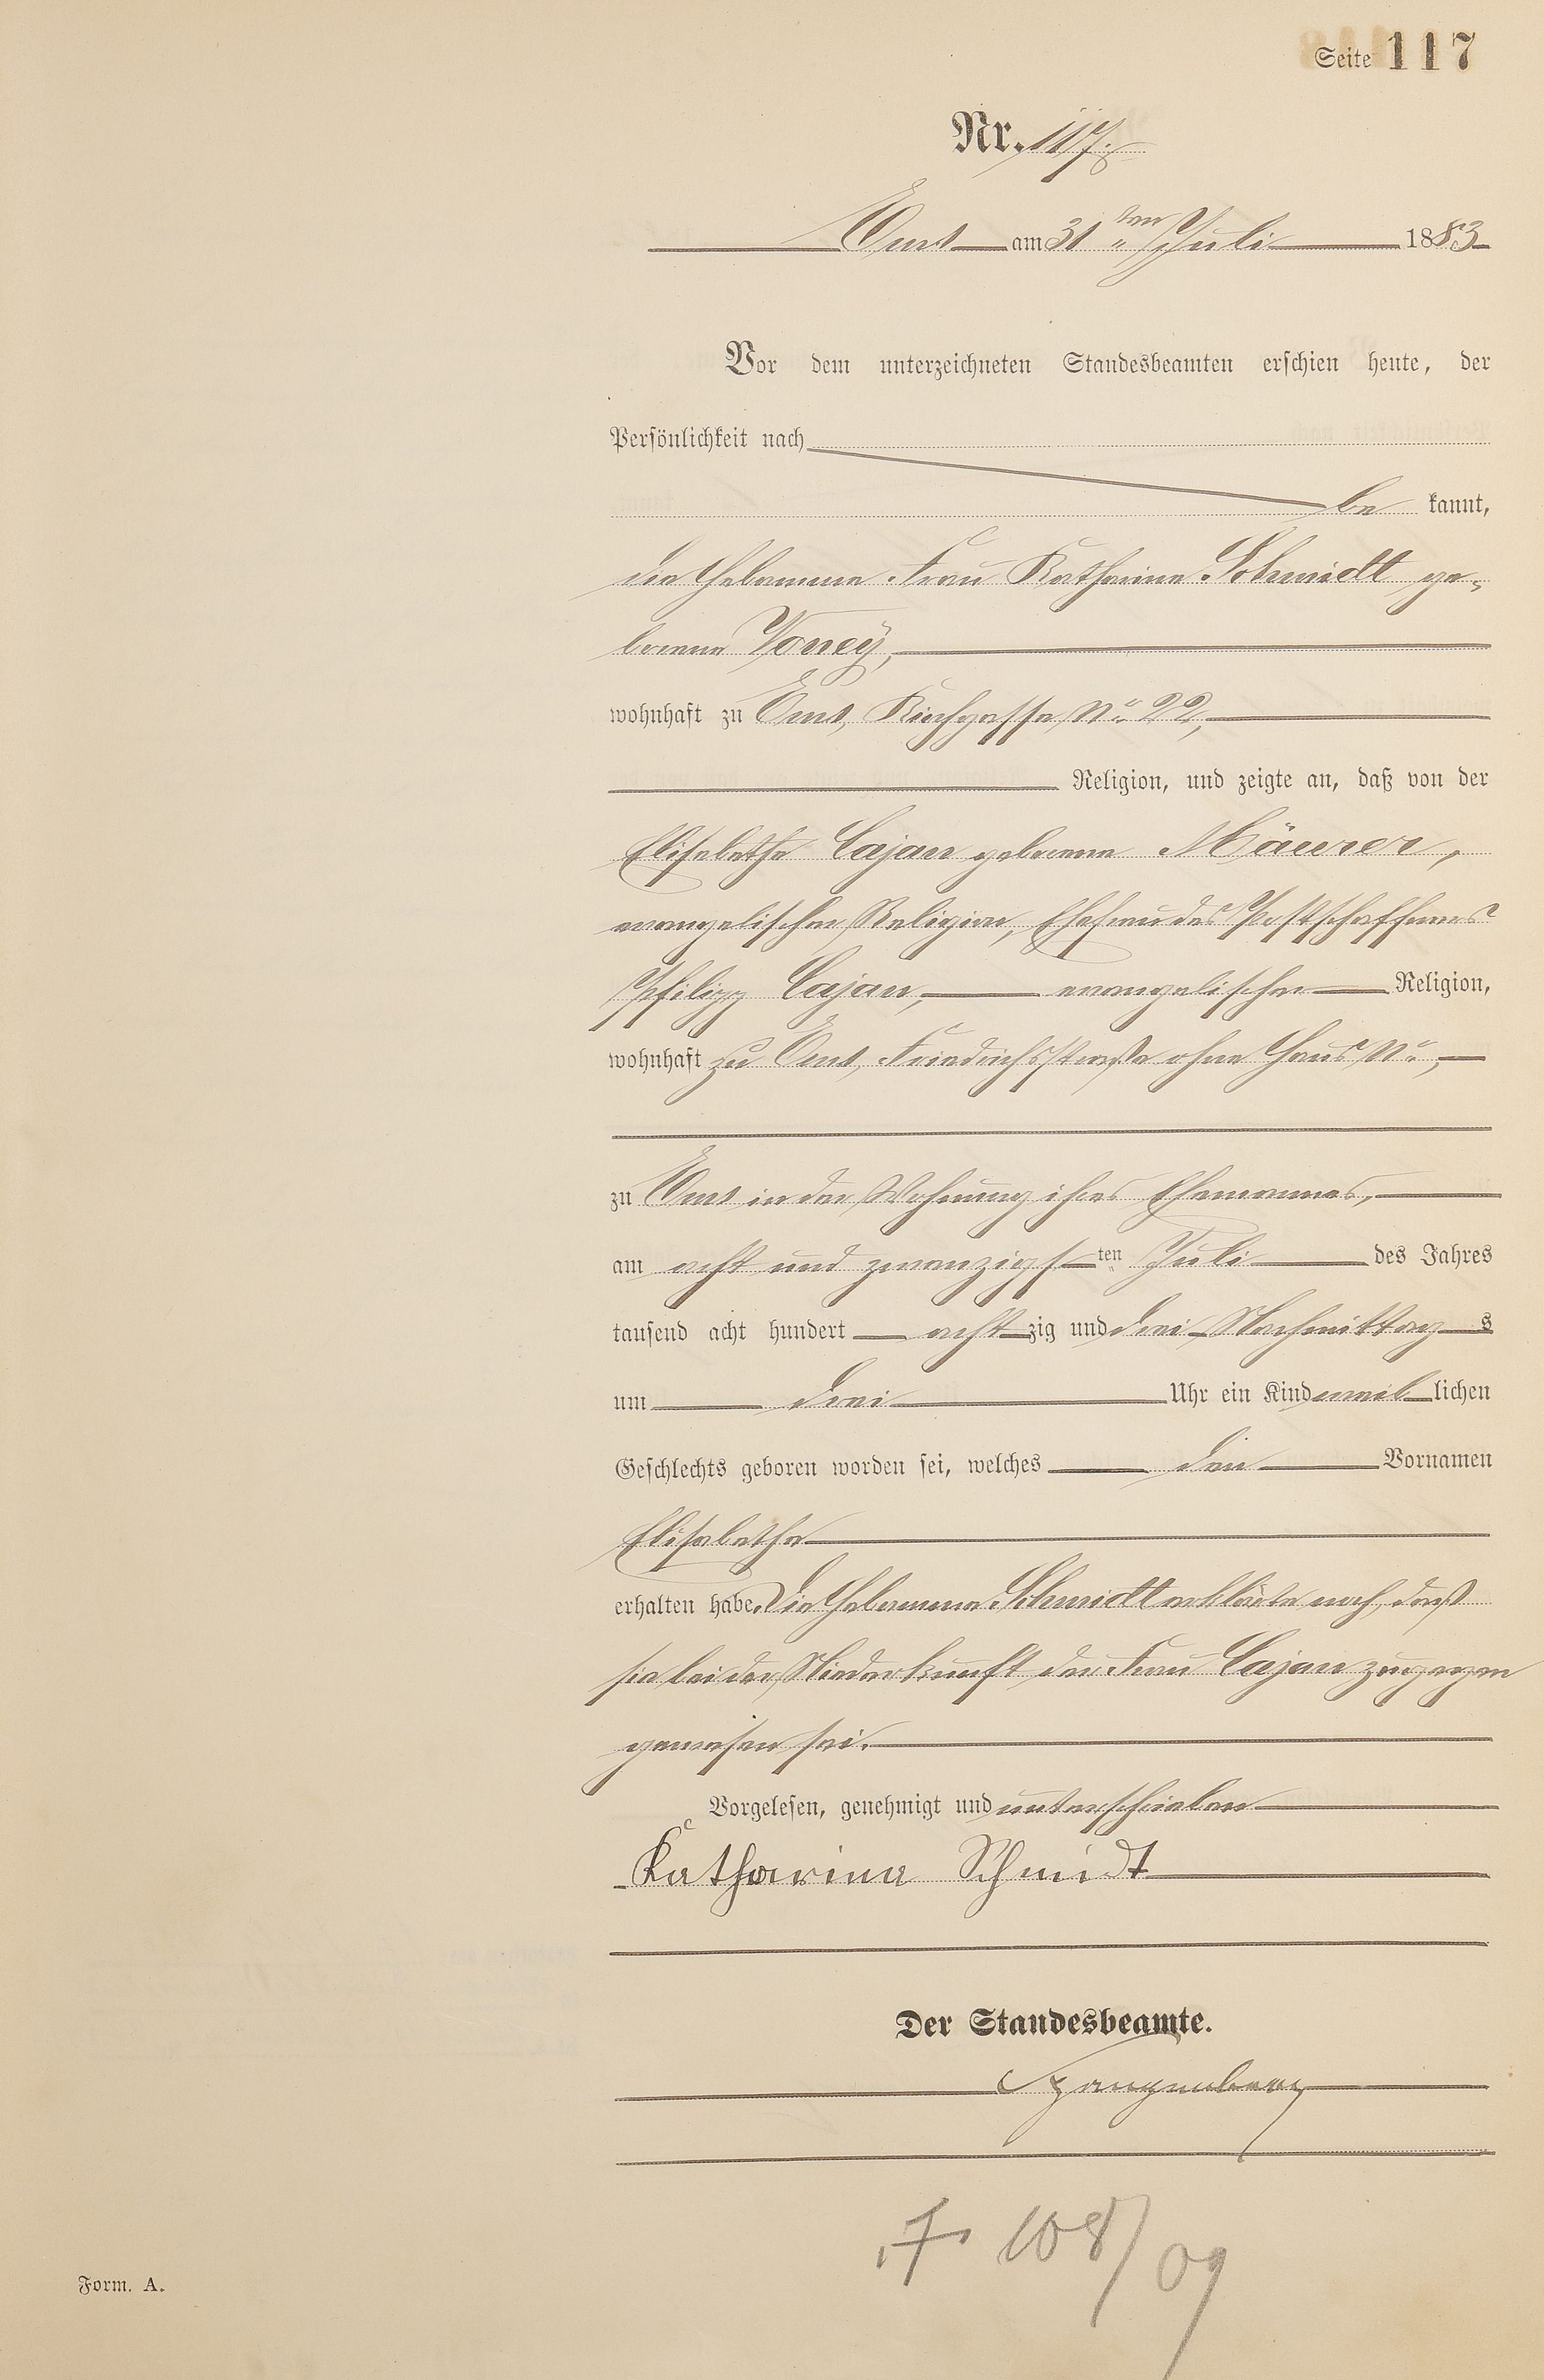 Seite 117
Nr. 117.
Ems am 31ten Juli 1883
Vor dem unterzeichneten Standesbeamten erschien heute, der
Persönlichkeit nach
be kannt,
die Hebamme Frau Katharina Schmidt ge-
borene Voney,
wohnhaft zu Ems, Kirchgasse No. 22,
Religion, und zeigte an, daß von der
Elisabetha Cajan geborene Mäurer,
evangelischer Religion, Ehefrau des Postschaffners
Philipp Cajan, evangelischer Religion,
wohnhaft zu Ems, Friedrichsstraße ohne Haus No.,
zu Ems in der Wohnung ihres Ehemannes,
am acht und zwanzigsten Juli des Jahres
tausend acht hundert acht zig und drei Nachmittag s
um drei Uhr ein Kind weib lichen
Geschlechts geboren worden sei, welches den Vornamen
Elisabetha
erhalten habe. Die Hebamme Schmidt erklärte noch, daß
sie bei der Niederkunft der Frau Cajan zugegen
gewesen sei.
Vorgelesen, genehmigt und unterschrieben
Katharina Schmidt
Der Standesbeamte.
Spangenberg
F 108/09
Form. A.